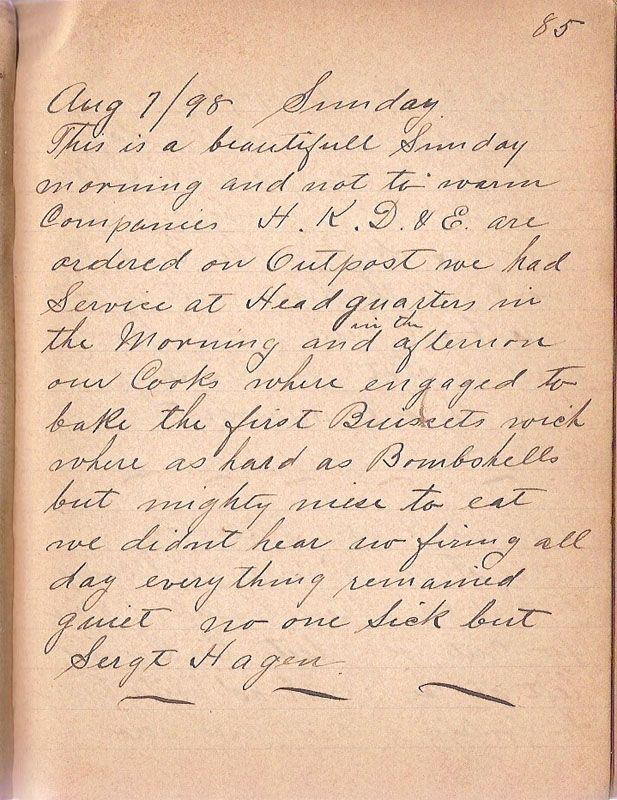 85
Aug 7/98 Sunday
This is a beautifull Sunday
morning and not to warm
Companies H. K. D. & E. are
ordered on Outpost we had
Service at Headquarters in
the Morning and in the afternoon
our Cooks where engaged to
bake the first Buiscets wich
where as hard as Bombshells
but mighty niese to eat
we didnt hear no firing all
day everything remained
quiet no one Sick but
Sergt Hagen.